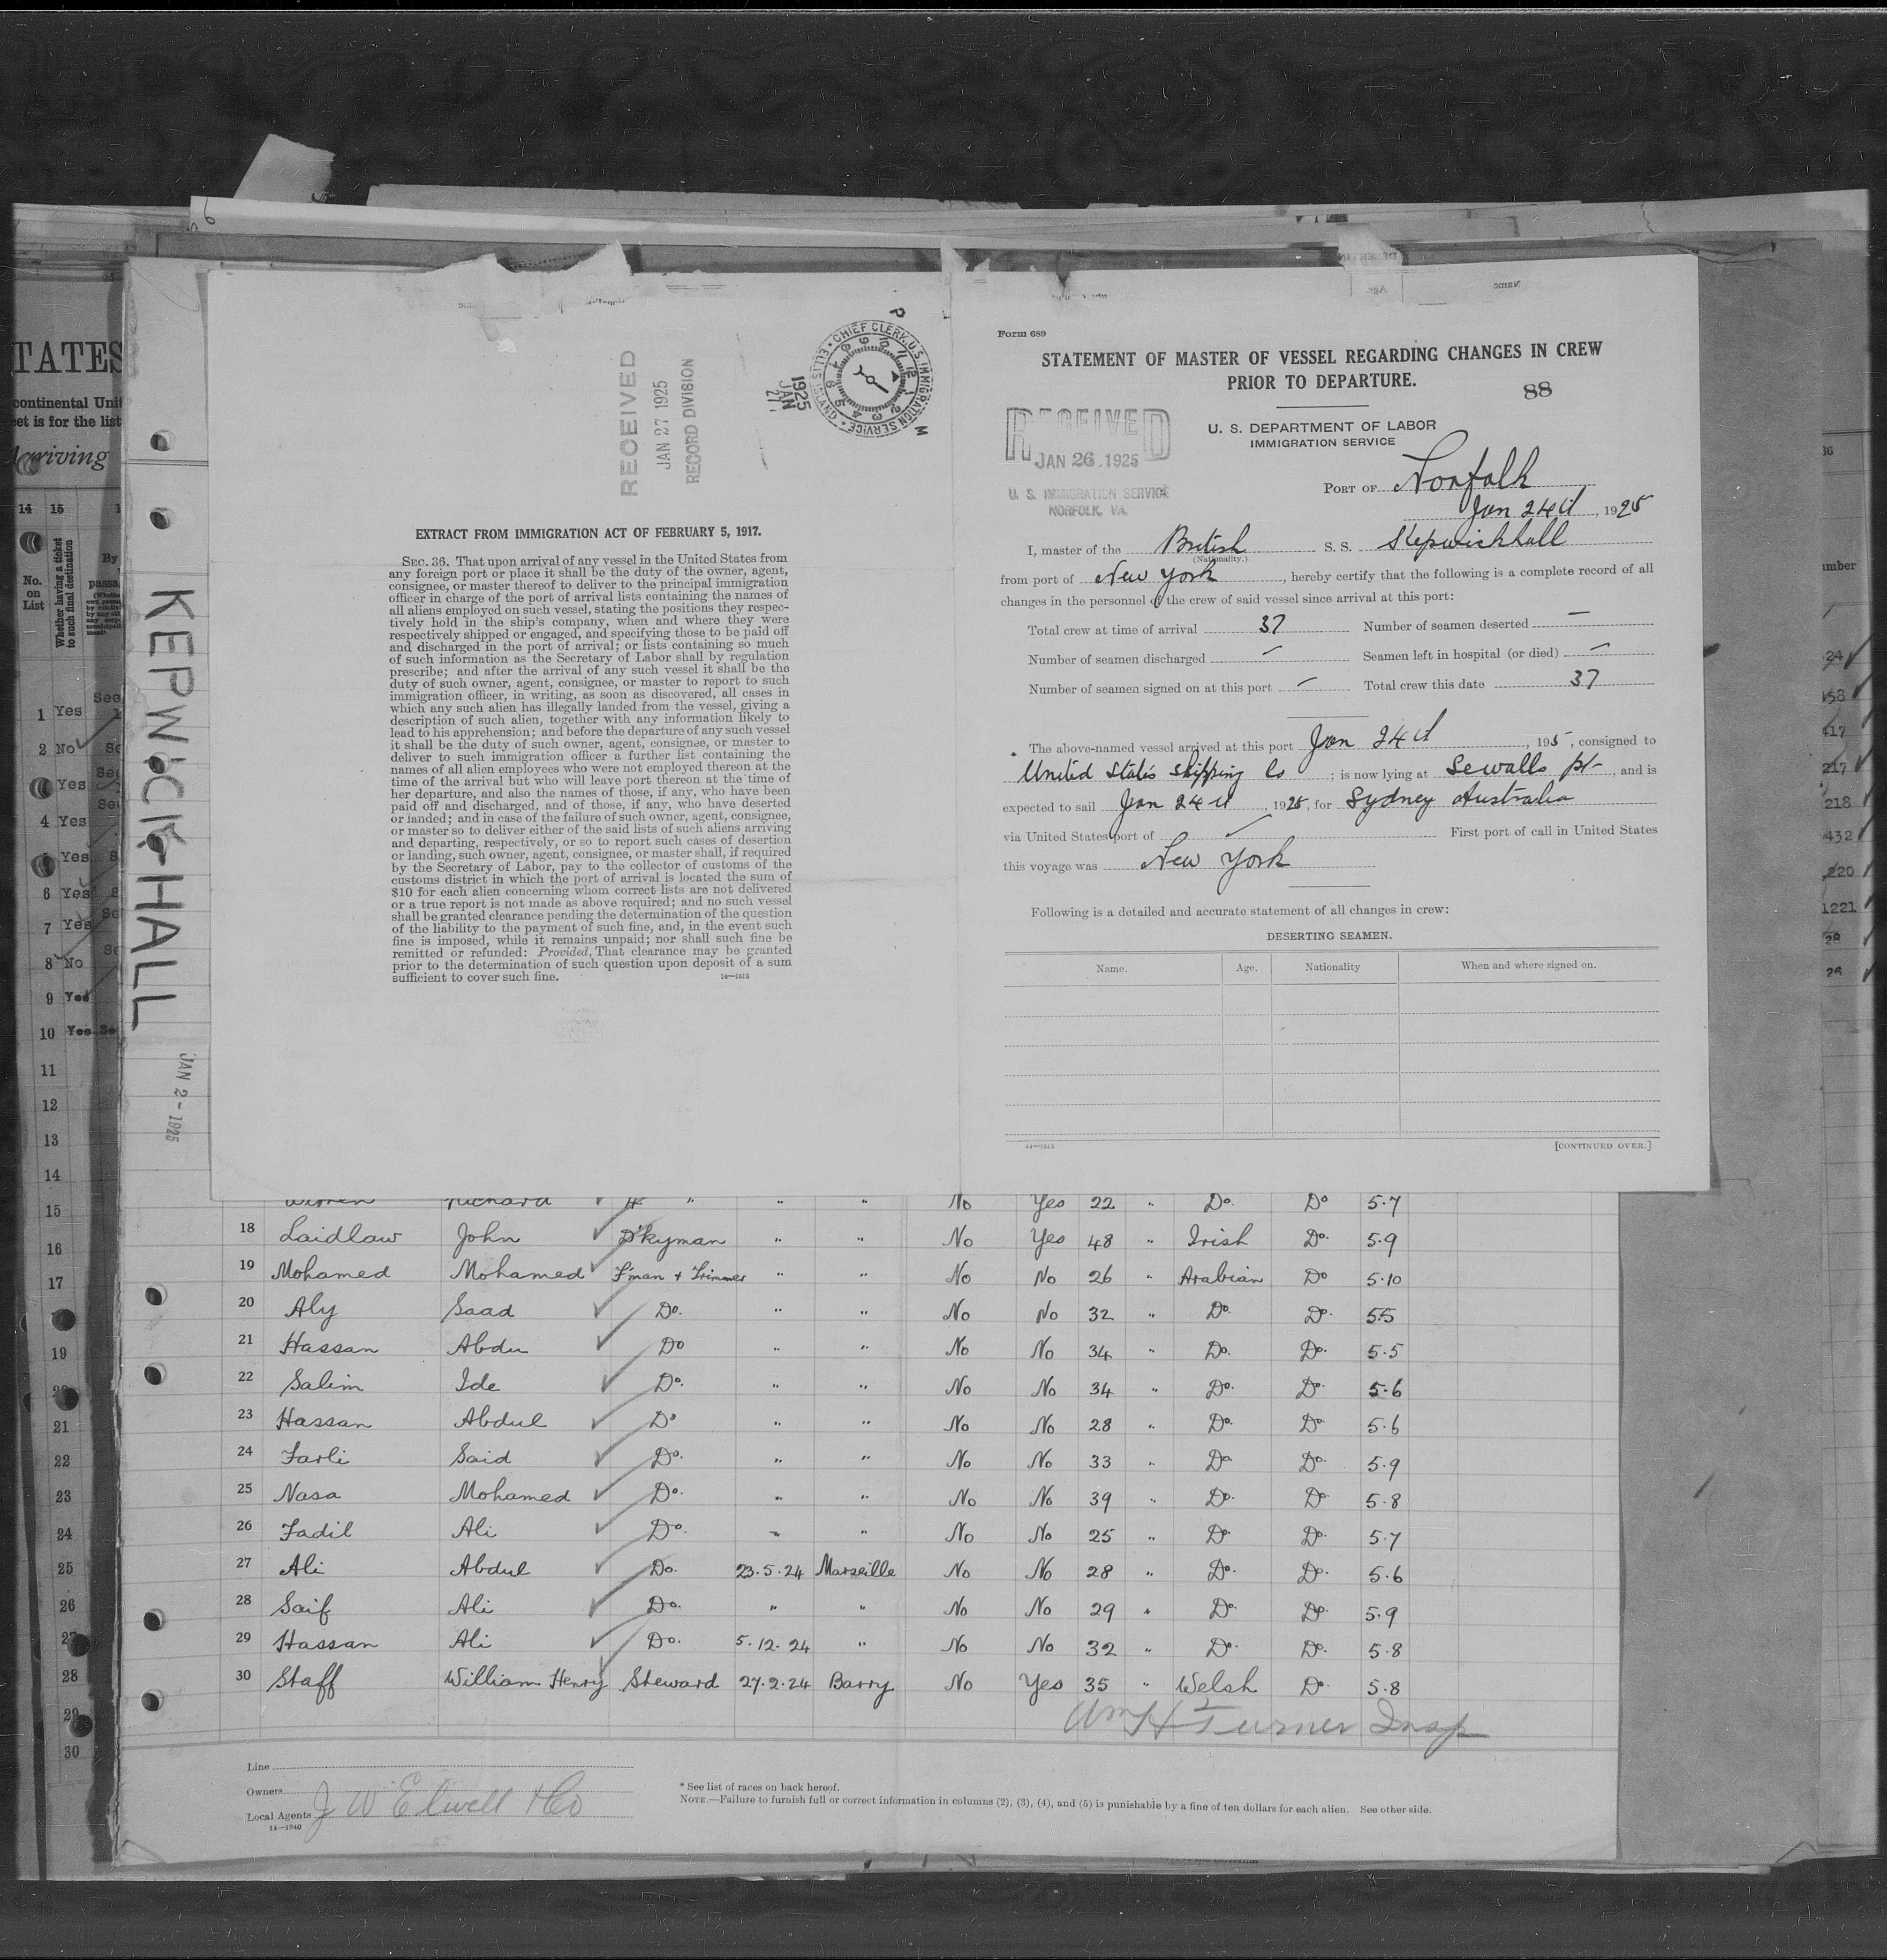 TATES
continental Unit
eet is for the list
Arriving
14 15
No.
on
List
Whether having a ticket
to such final destination
By
passa
1 Yes See
2 No
Yes See
4 Yes
Yes
6 Yes
7 Yes
8 No
9 Yes
10 Yes Se
11
12
13
14
15
16
17
19
21
22
23
24
25
26
27
28
29
30
KEPWICK HALL
JAN 2 - 1925
RECEIVED
JAN 27 1925
RECORD DIVISION
CHIEF CLERK, U.S. IMMIGRATION SERVICE • ELLIS ISLAND •
1925
JAN
27
P
M
EXTRACT FROM IMMIGRATION ACT OF FEBRUARY 5, 1917.
SEC. 36. That upon arrival of any vessel in the United States from
any foreign port or place it shall be the duty of the owner, agent,
consignee, or master thereof to deliver to the principal immigration
officer in charge of the port of arrival lists containing the names of
all aliens employed on such vessel, stating the positions they respec-
tively hold in the ship's company, when and where they were
respectively shipped or engaged, and specifying those to be paid off
and discharged in the port of arrival; or lists containing so much
of such information as the Secretary of Labor shall by regulation
prescribe; and after the arrival of any such vessel it shall be the
duty of such owner, agent, consignee, or master to report to such
immigration officer, in writing, as soon as discovered, all cases in
which any such alien has illegally landed from the vessel, giving a
description of such alien, together with any information likely to
lead to his apprehension; and before the departure of any such vessel
it shall be the duty of such owner, agent, consignee, or master to
deliver to such immigration officer a further list containing the
names of all alien employees who were not employed thereon at the
time of the arrival but who will leave port thereon at the time of
her departure, and also the names of those, if any, who have been
paid off and discharged, and of those, if any, who have deserted
or landed; and in case of the failure of such owner, agent, consignee,
or master so to deliver either of the said lists of such aliens arriving
and departing, respectively, or so to report such cases of desertion
or landing, such owner, agent, consignee, or master shall, if required
by the Secretary of Labor, pay to the collector of customs of the
customs district in which the port of arrival is located the sum of
$10 for each alien concerning whom correct lists are not delivered
or a true report is not made as above required; and no such vessel
shall be granted clearance pending the determination of the question
of the liability to the payment of such fine, and, in the event such
fine is imposed, while it remains unpaid; nor shall such fine be
remitted or refunded: Provided, That clearance may be granted
prior to the determination of such question upon deposit of a sum
sufficient to cover such fine. 14—1613
Form 689
STATEMENT OF MASTER OF VESSEL REGARDING CHANGES IN CREW
PRIOR TO DEPARTURE.
88
U. S. DEPARTMENT OF LABOR
IMMIGRATION SERVICE
RECEIVED
JAN 26 1925
U. S. IMMIGRATION SERVICE
NORFOLK, VA.
PORT OF Norfolk
Jan 24th, 1925
I, master of the British S. S. Kepwickhall
(Nationality.)
from port of New York, hereby certify that the following is a complete record of all
changes in the personnel of the crew of said vessel since arrival at this port:
Total crew at time of arrival 37 Number of seamen deserted —
Number of seamen discharged — Seamen left in hospital (or died) —
Number of seamen signed on at this port — Total crew this date 37
The above-named vessel arrived at this port Jan 24th, 195, consigned to
United States Shipping Co; is now lying at Sewalls pt, and is
expected to sail Jan 24th, 1925, for Sydney Australia
via United States port of First port of call in United States
this voyage was New York
Following is a detailed and accurate statement of all changes in crew:
DESERTING SEAMEN.
Name. Age. Nationality When and where signed on.
14—1613 [CONTINUED OVER.]
Richard 4 " " " No Yes 22 " Do. Do 5.7
18 Laidlaw John D'kyman " " No Yes 48 " Irish Do. 5.9
19 Mohamed Mohamed F'man + Trimmer " " No No 26 " Arabian Do 5.10
20 Aly Saad Do. " " No No 32 " Do. Do. 5.5
21 Hassan Abdu Do " " No No 34 " Do. Do. 5.5
22 Salim Ide Do. " " No No 34 " Do. Do. 5.6
23 Hassan Abdul Do " " No No 28 " Do. Do. 5.6
24 Farli Said Do. " " No No 33 " Do Do. 5.9
25 Nasa Mohamed Do. " " No No 39 " Do. Do 5.8
26 Fadil Ali Do. " " No No 25 " Do. Do. 5.7
27 Ali Abdul Do. 23.5.24 Marseille No No 28 " Do. Do. 5.6
28 Saif Ali Do. " " No No 29 " Do. Do. 5.9
29 Hassan Ali Do. 5.12.24 " No No 32 " Do. Do. 5.8
30 Staff William Henry Steward 27.2.24 Barry No Yes 35 " Welsh Do. 5.8
Wm H Turner Insp
Line
Owners
Local Agents J W Elwell & Co
14—1240
* See list of races on back hereof.
NOTE.—Failure to furnish full or correct information in columns (2), (3), (4), and (5) is punishable by a fine of ten dollars for each alien. See other side.
36
umber
24
158
417
217
218
432
220
1221
28
26